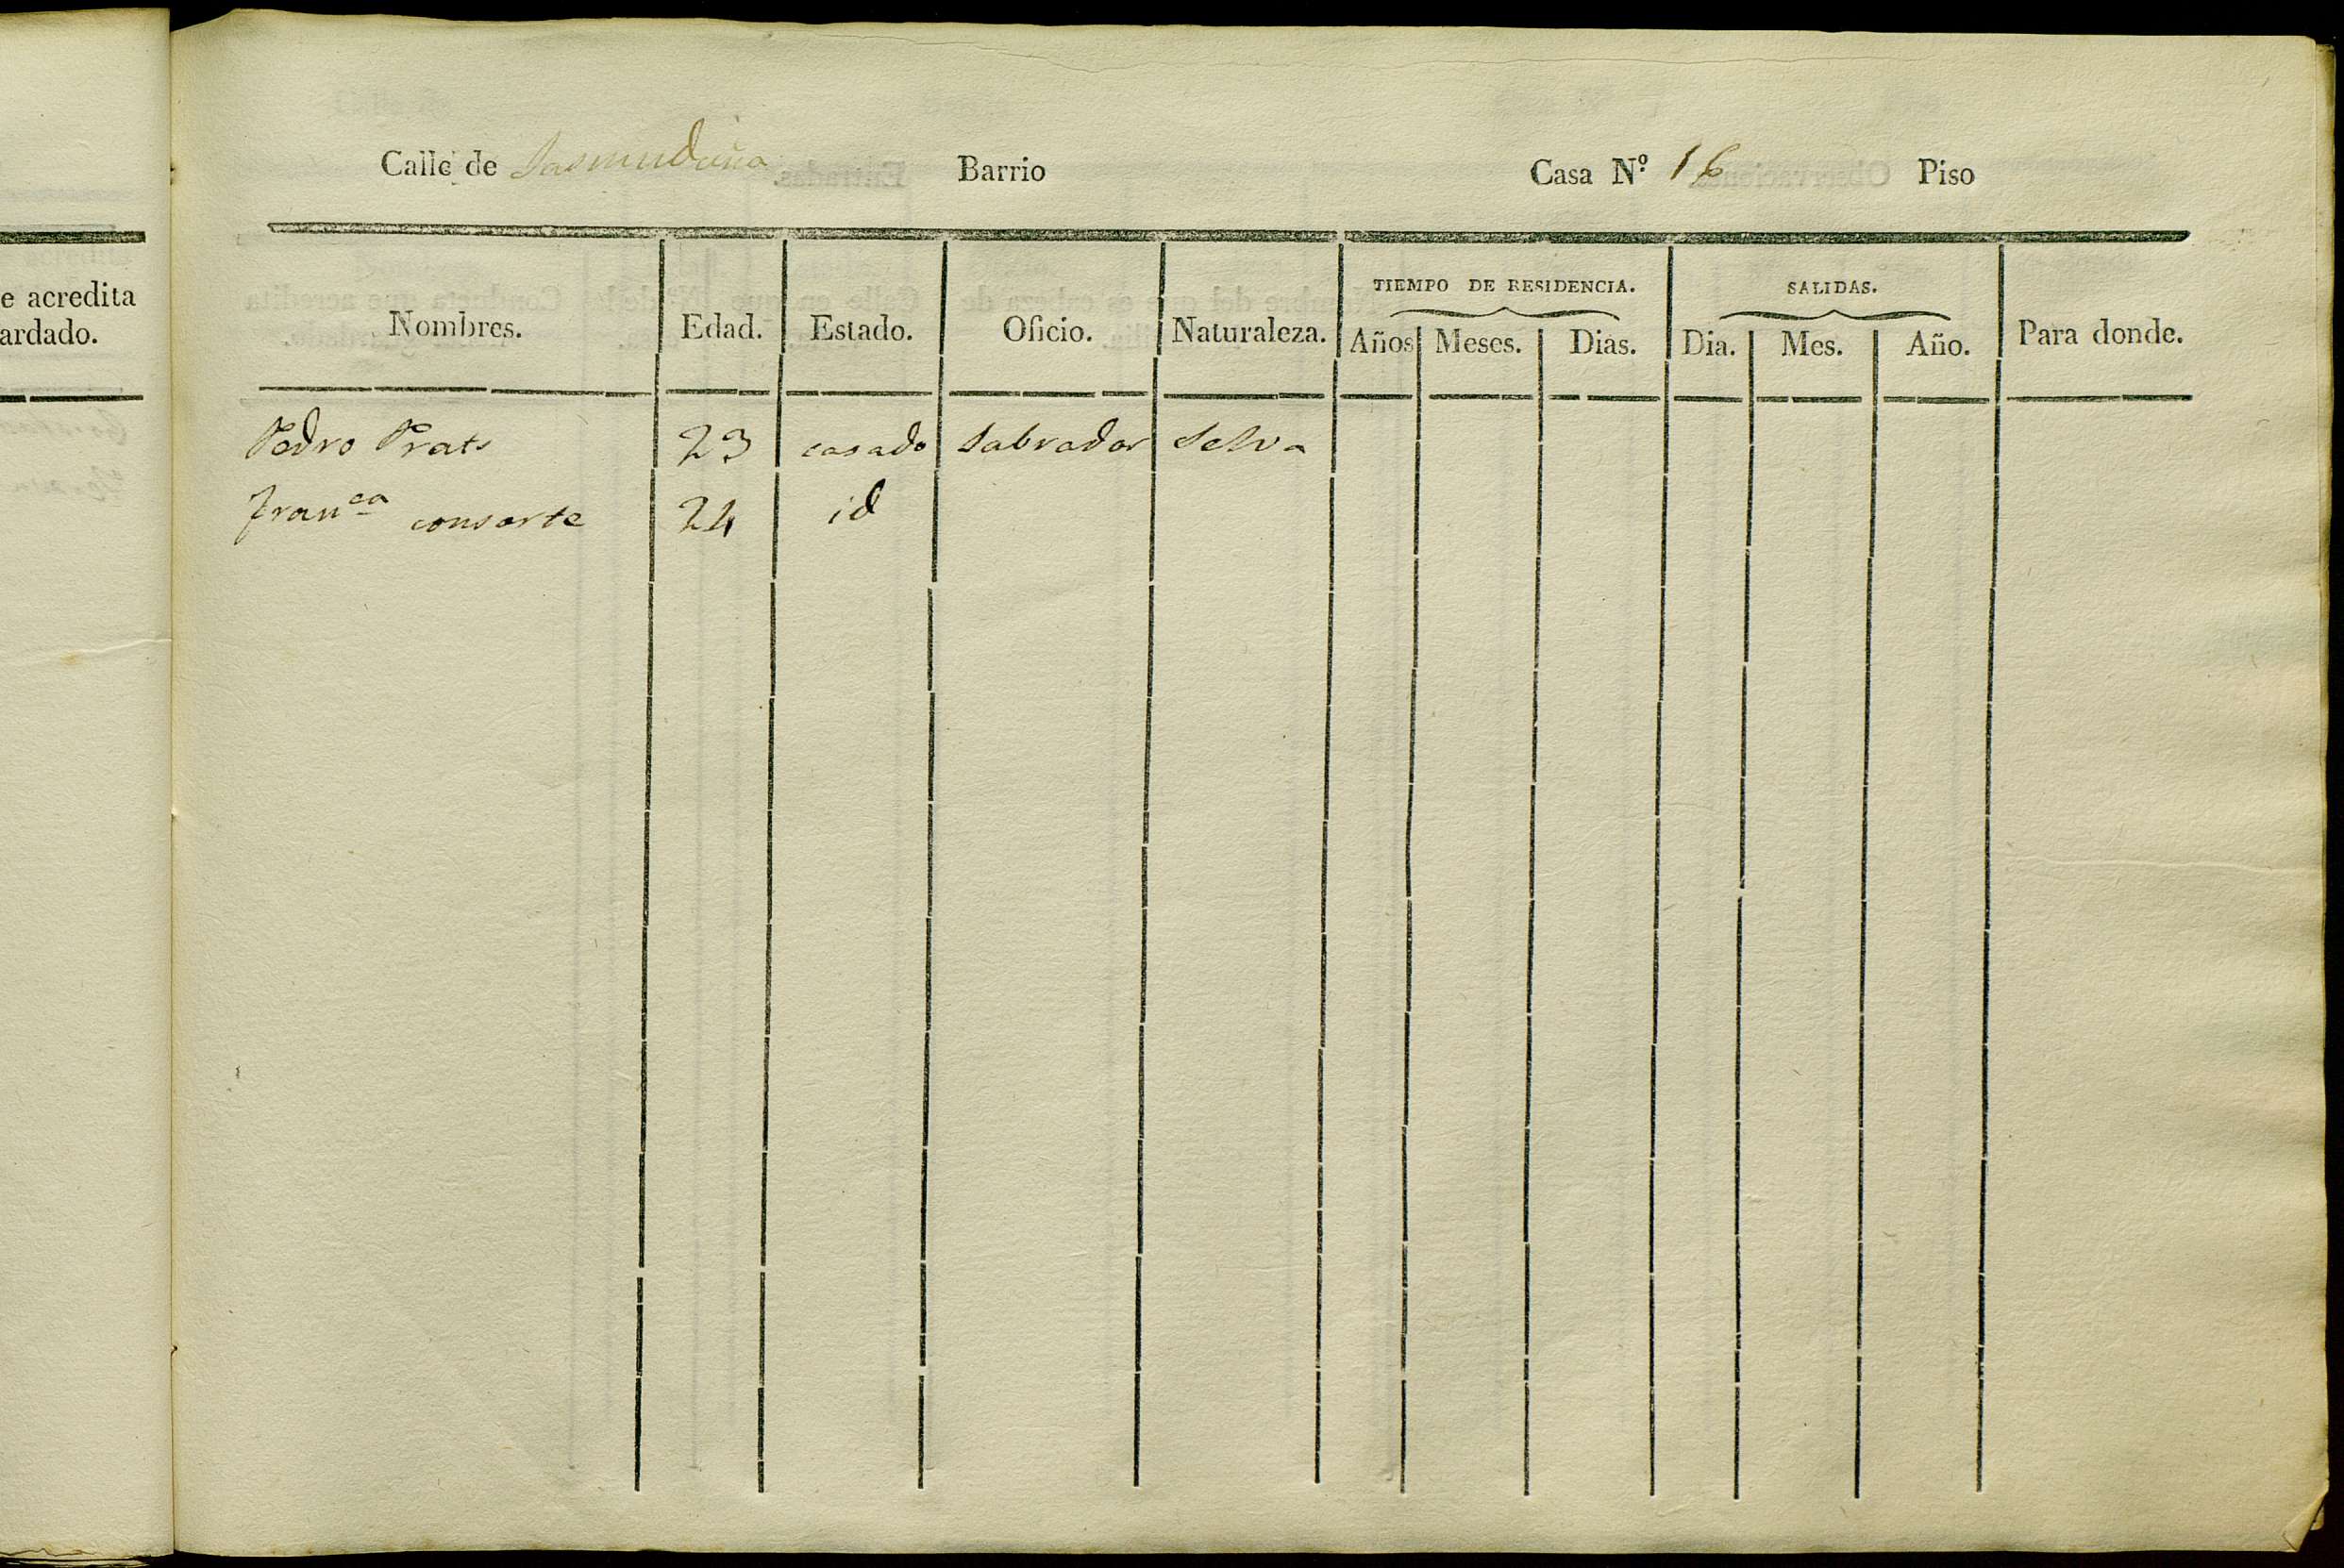 e acredita
ardado.
Calle de Barrio Casa Nº 16 Piso
Nombres. Edad. Estado. Oficio. Naturaleza. TIEMPO DE RESIDENCIA. Años Meses. Dias. SALIDAS. Dia. Mes. Año. Para donde.
Pedro Prats 23 casado Labrador Selva
Franca consorte 24 id